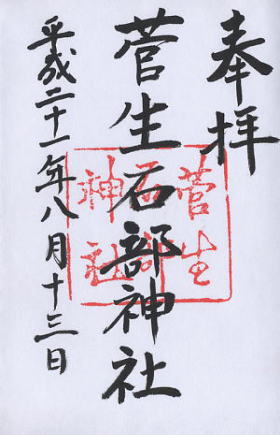 奉拝
菅生石部神社
平成二十一年八月十三日
菅生
石部
神社